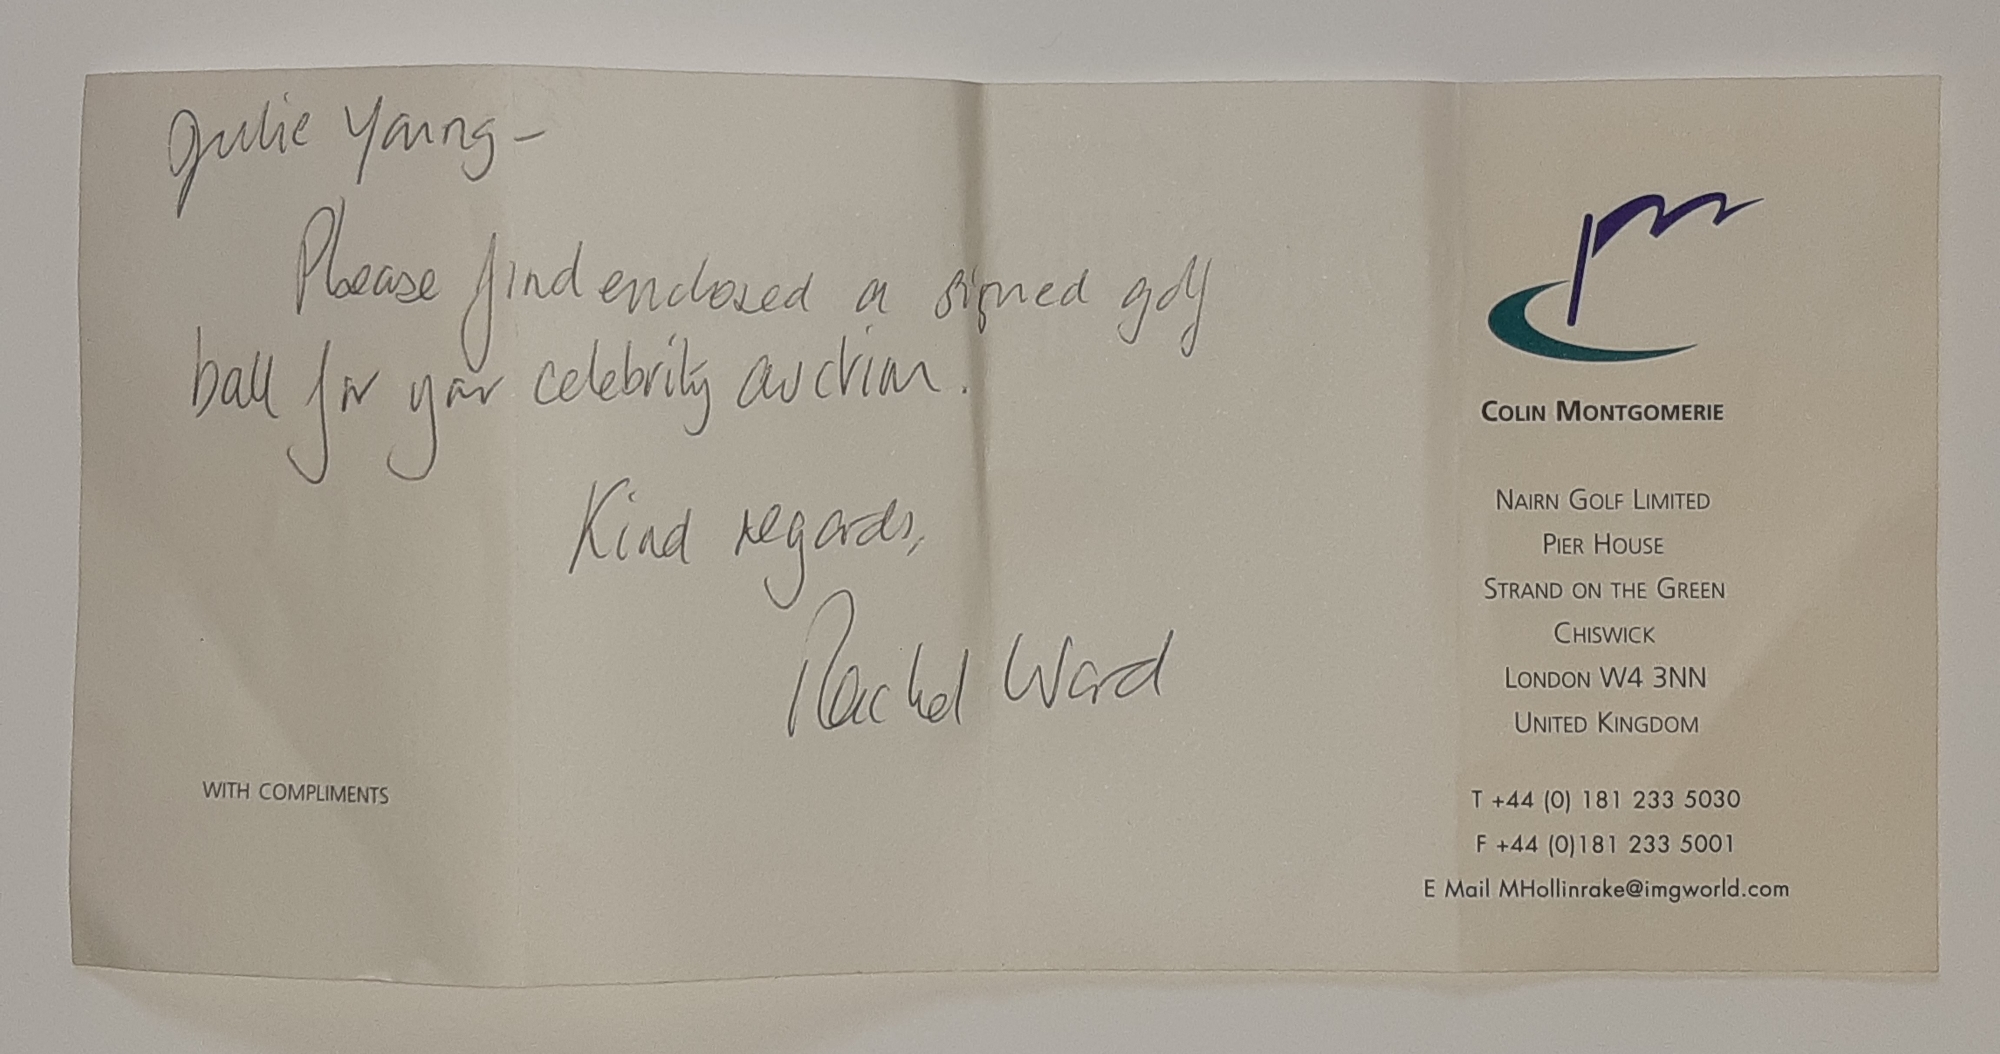 Julie Young –
Please find enclosed a signed golf
ball for your celebrity auction.
Kind regards,
Rachel Ward
WITH COMPLIMENTS
COLIN MONTGOMERIE
NAIRN GOLF LIMITED
PIER HOUSE
STRAND ON THE GREEN
CHISWICK
LONDON W4 3NN
UNITED KINGDOM
T +44 (0) 181 233 5030
F +44 (0)181 233 5001
E Mail MHollinrake@imgworld.com